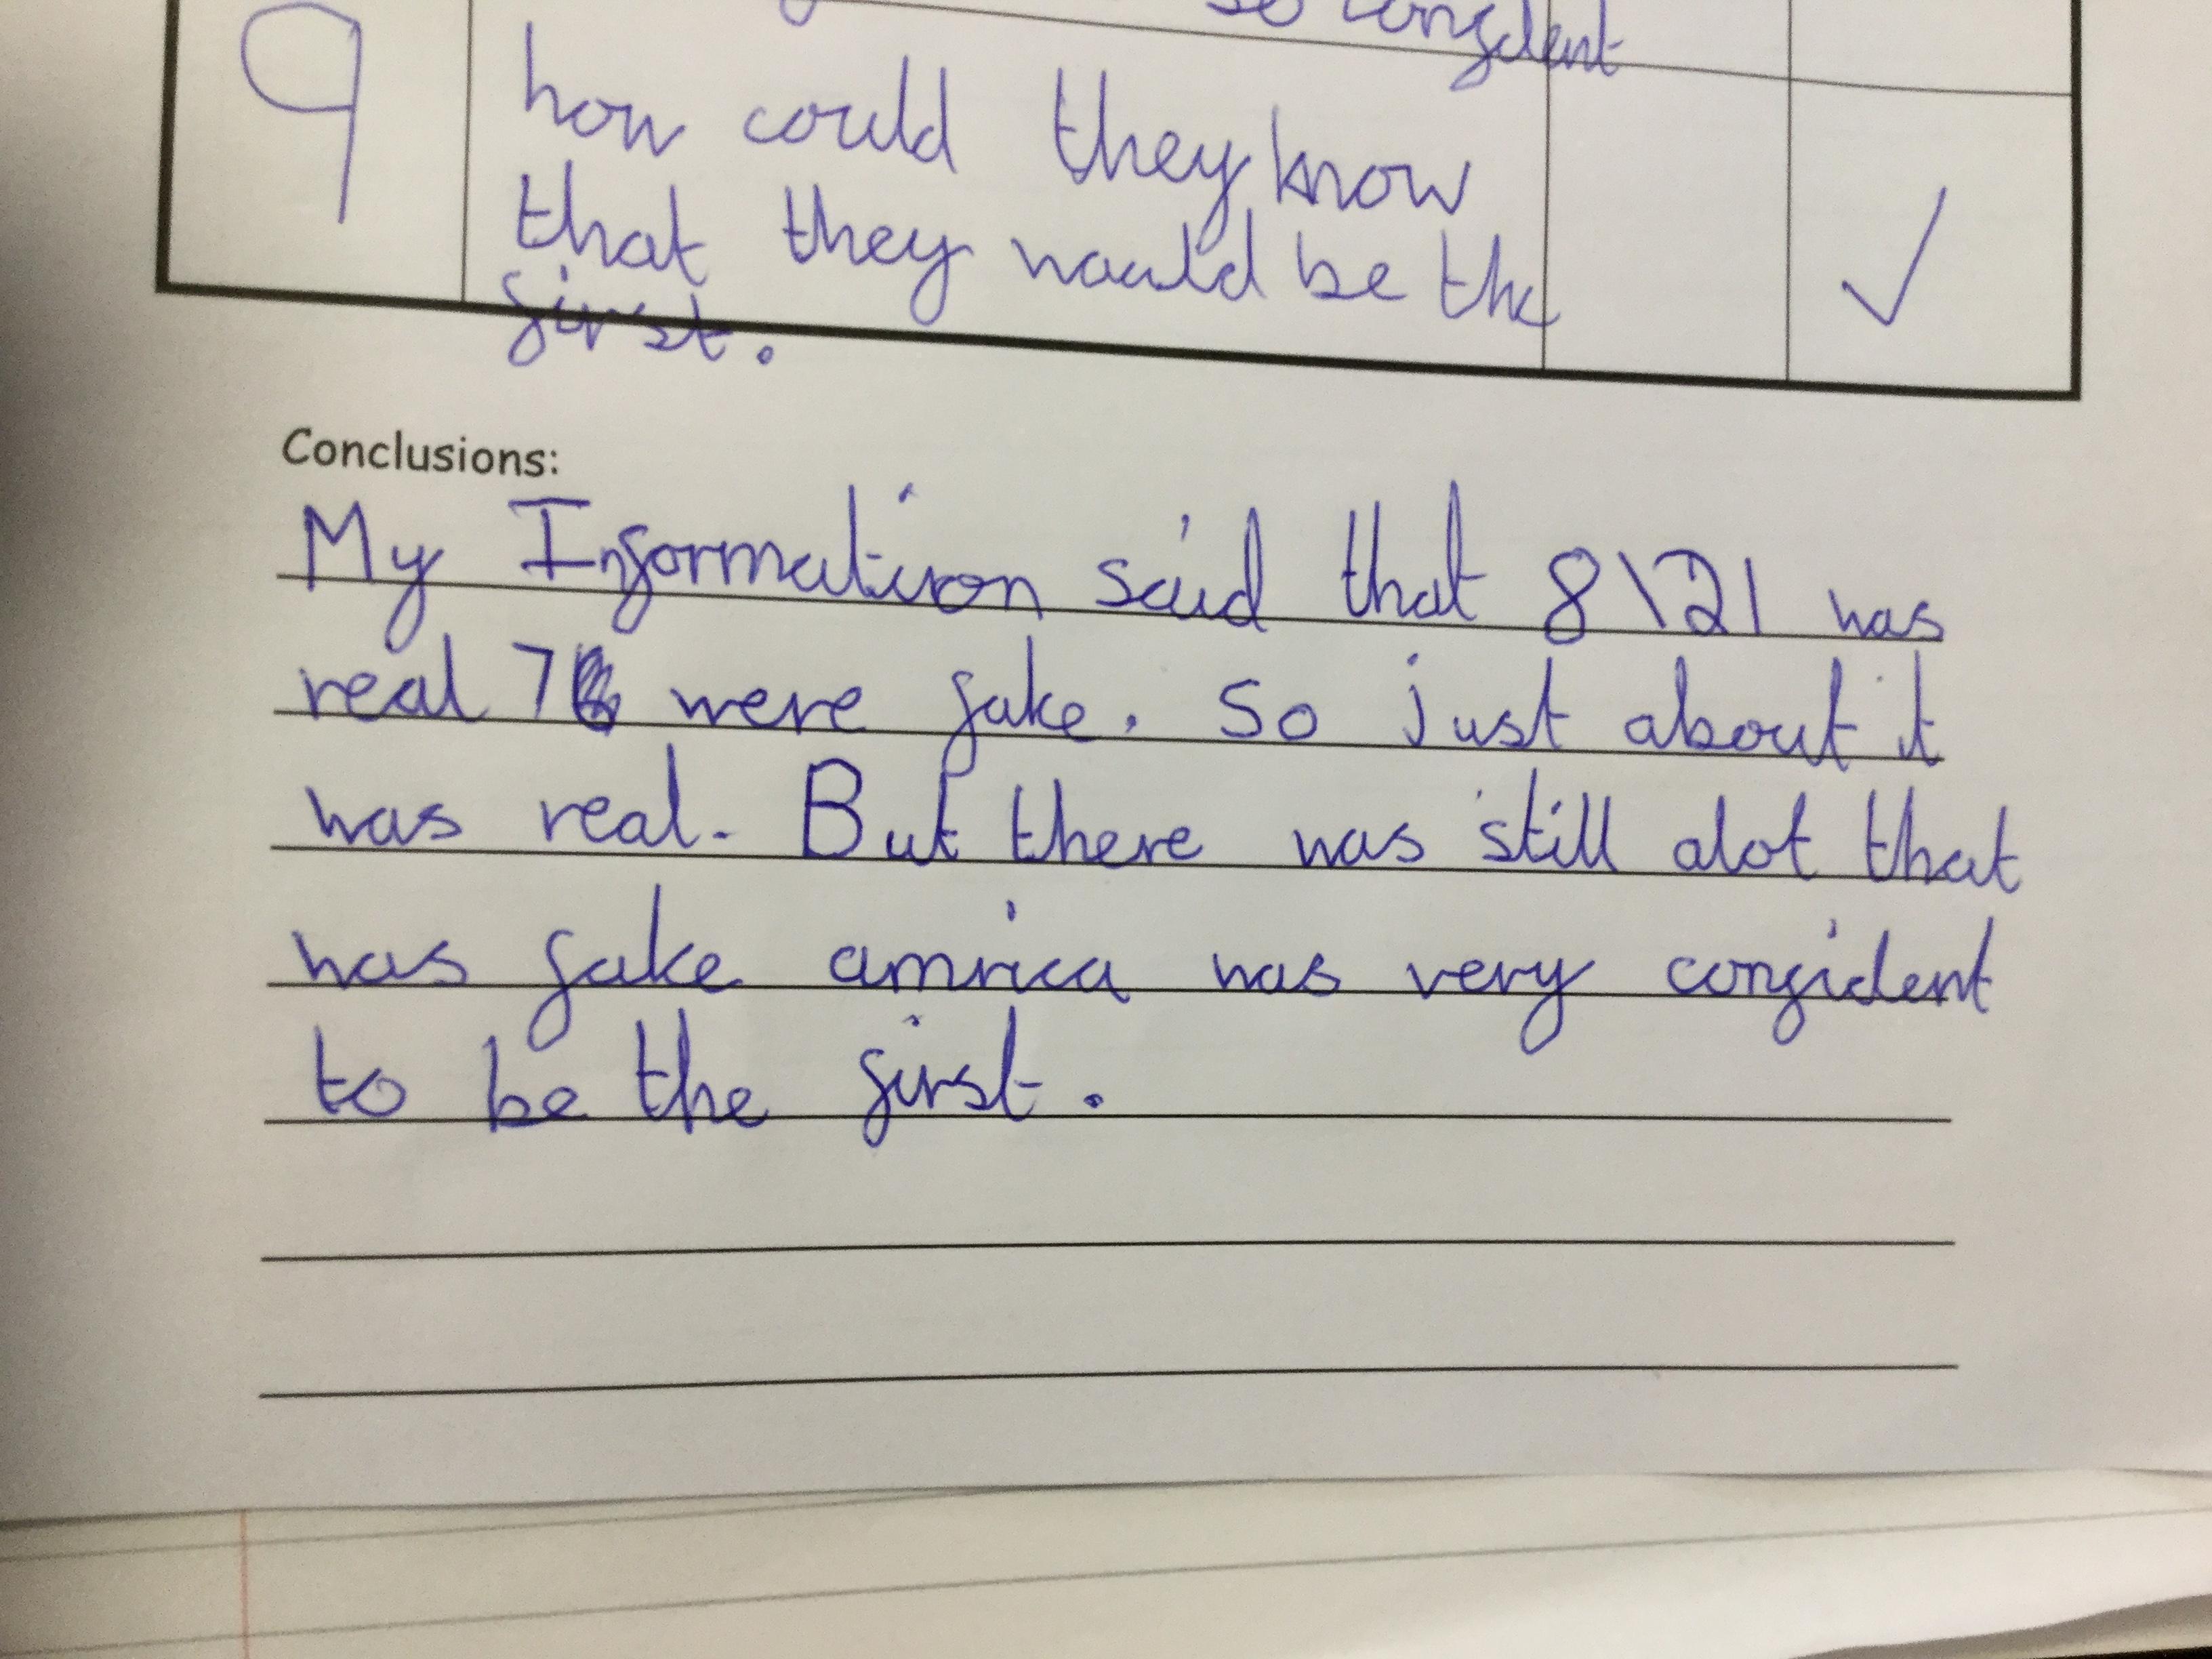 so confident
9 how could they know
that they would be the
first.
Conclusions:
My Information said that 8\21 was
real 7 were fake. So just about it
was real. But there was still alot that
was fake amrica was very confident
to be the first.